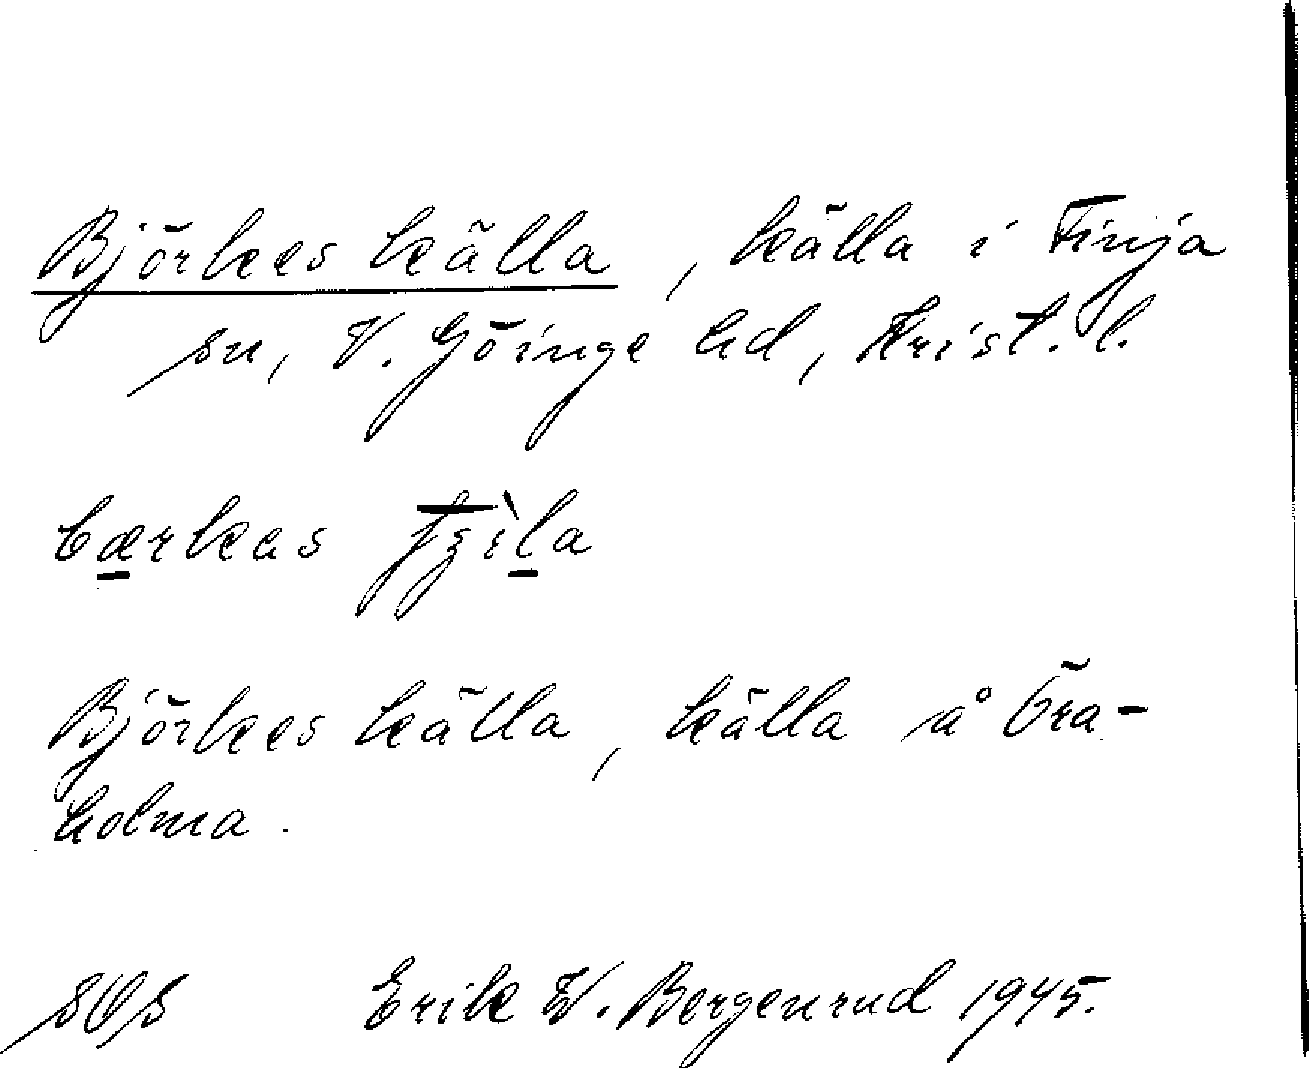 Björkes källa, källa i Finja
sn, V. Göinge hd, Krist. l.
Björkes källa, källa å Öra-
holma.
Erik W. Bergenrud 1945.